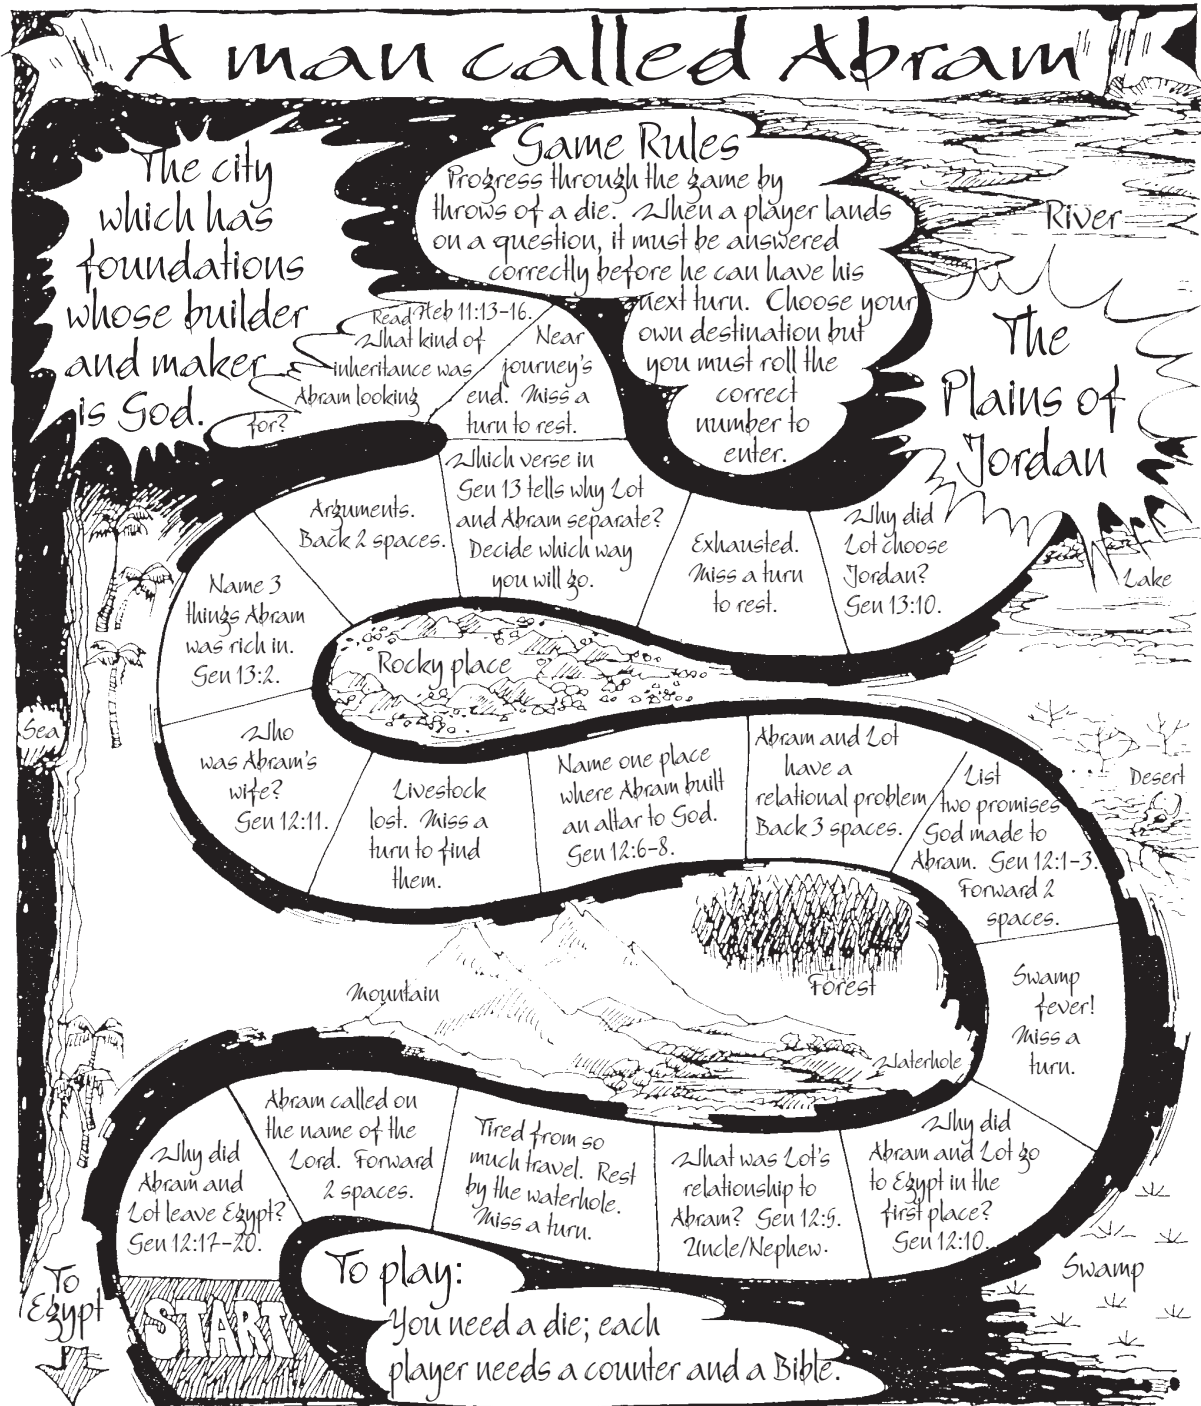 A man called Abram
The city
which has
foundations
whose builder
and maker
is God.
Game Rules
Progress through the game by
throws of a die. When a player lands
on a question, it must be answered
correctly before he can have his
next turn. Choose your
own destination but
you must roll the
correct
number to
enter.
River
The
Plains of
Jordan
Read Heb 11:13-16.
What kind of
inheritance was
Abram looking
for?
Near
journey's
end. Miss a
turn to rest.
Which verse in
Gen 13 tells why Lot
and Abram separate?
Decide which way
you will go.
Arguments.
Back 2 spaces.
Exhausted.
Miss a turn
to rest.
Why did
Lot choose
Jordan?
Gen 13:10.
Lake
Name 3
things Abram
was rich in.
Gen 13:2.
Rocky place
Sea
Who
was Abram's
wife?
Gen 12:11.
Livestock
lost. Miss a
turn to find
them.
Name one place
where Abram built
an altar to God.
Gen 12:6-8.
Abram and Lot
have a
relational problem
Back 3 spaces.
List
two promises
God made to
Abram. Gen 12:1-3.
Forward 2
spaces.
Desert
Swamp
fever!
Miss a
turn.
Forest
Mountain
Waterhole
Why did
Abram and
Lot leave Egypt?
Gen 12:17-20.
Abram called on
the name of the
Lord. Forward
2 spaces.
Tired from so
much travel. Rest
by the waterhole.
Miss a turn.
What was Lot's
relationship to
Abram? Gen 12:5.
Uncle/Nephew.
Why did
Abram and Lot go
to Egypt in the
first place?
Gen 12:10.
Swamp
To
Egypt
START
To play:
You need a die; each
player needs a counter and a Bible.